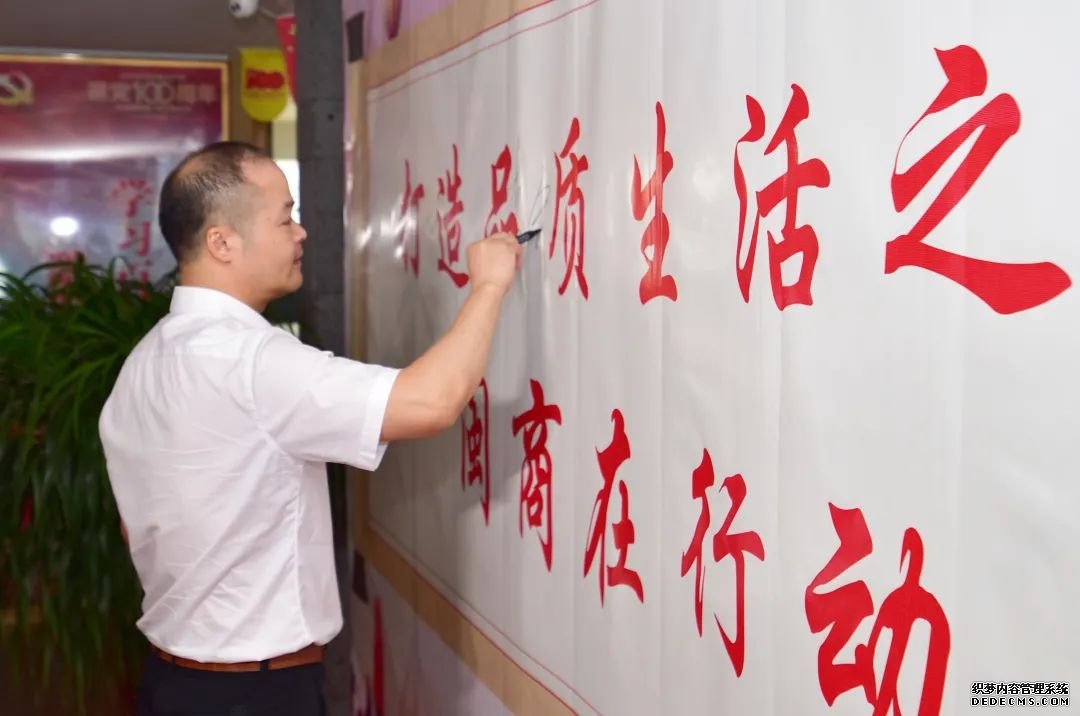 打造品质生活之
闽商在行动
建党100周年
学习
100
织梦内容管理系统
DEDECMS.COM